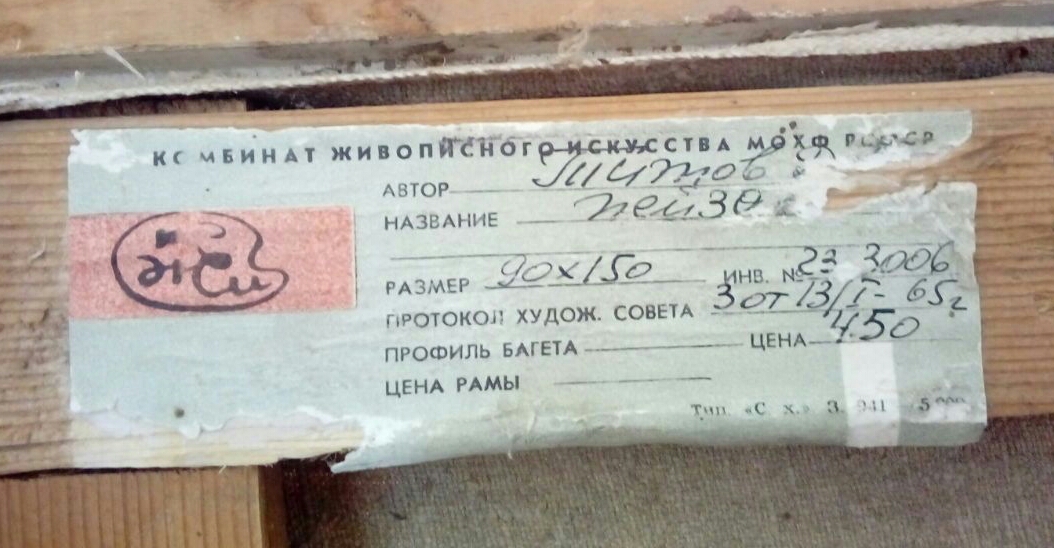 КОМБИНАТ ЖИВОПИСНОГО ИСКУССТВА МОХФ РСФСР
АВТОР Титов
НАЗВАНИЕ пейза
РАЗМЕР 90x150 ИНВ. № 22 3006
ПРОТОКОЛ ХУДОЖ. СОВЕТА 3 от 13/I- 65г
ПРОФИЛЬ БАГЕТА ЦЕНА 450
ЦЕНА РАМЫ
Тип. «С. х.» З. 941 5000